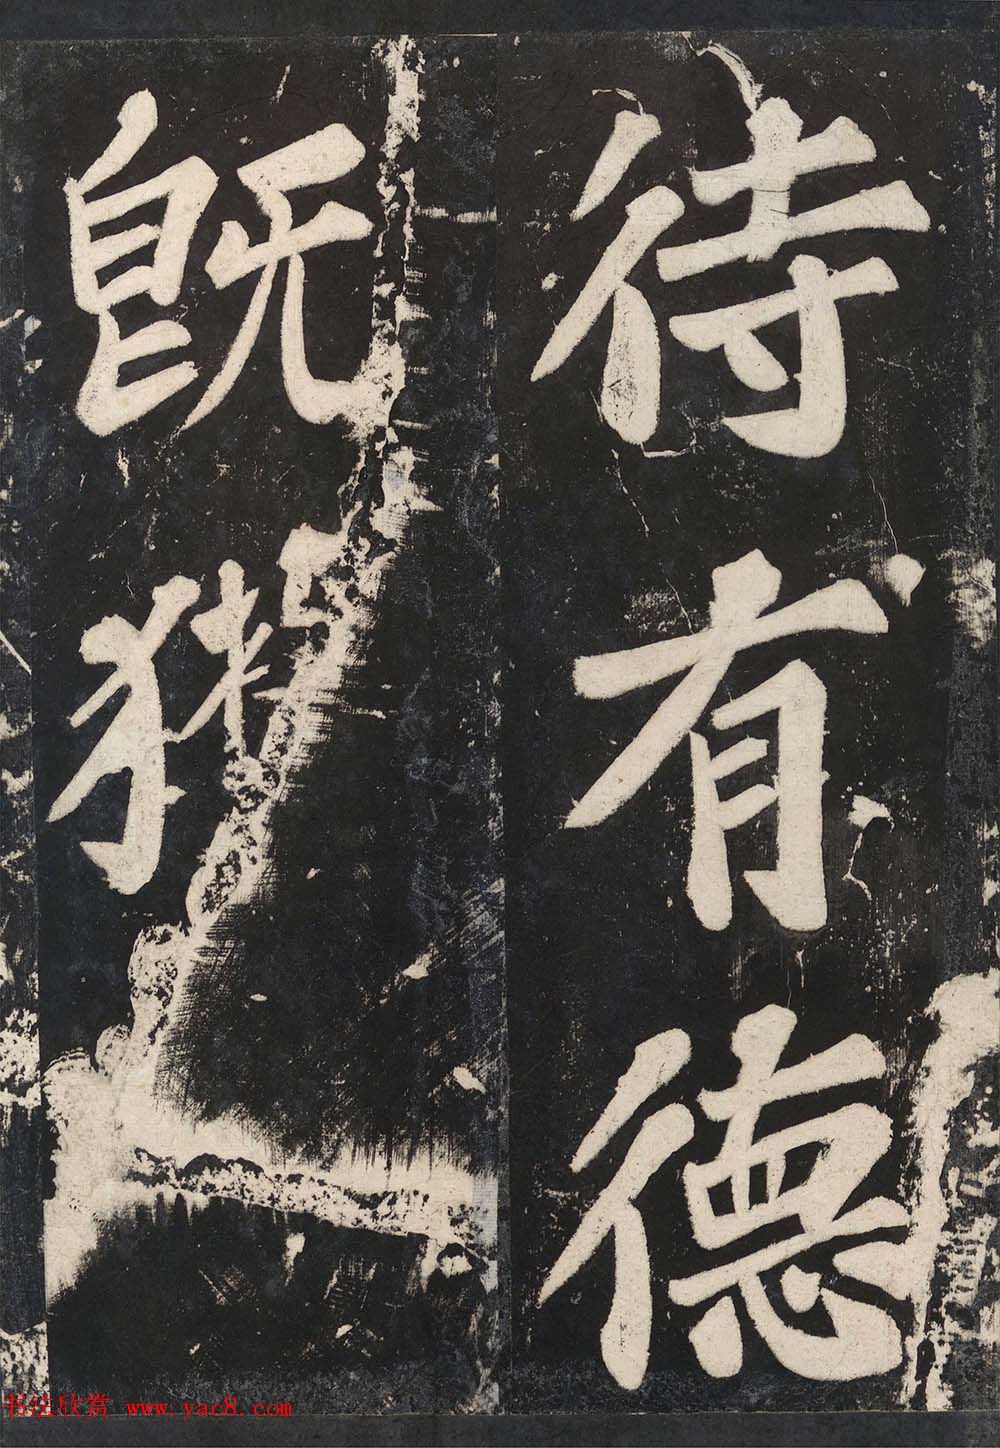 待有德
既
书法欣赏 www.yac8.com